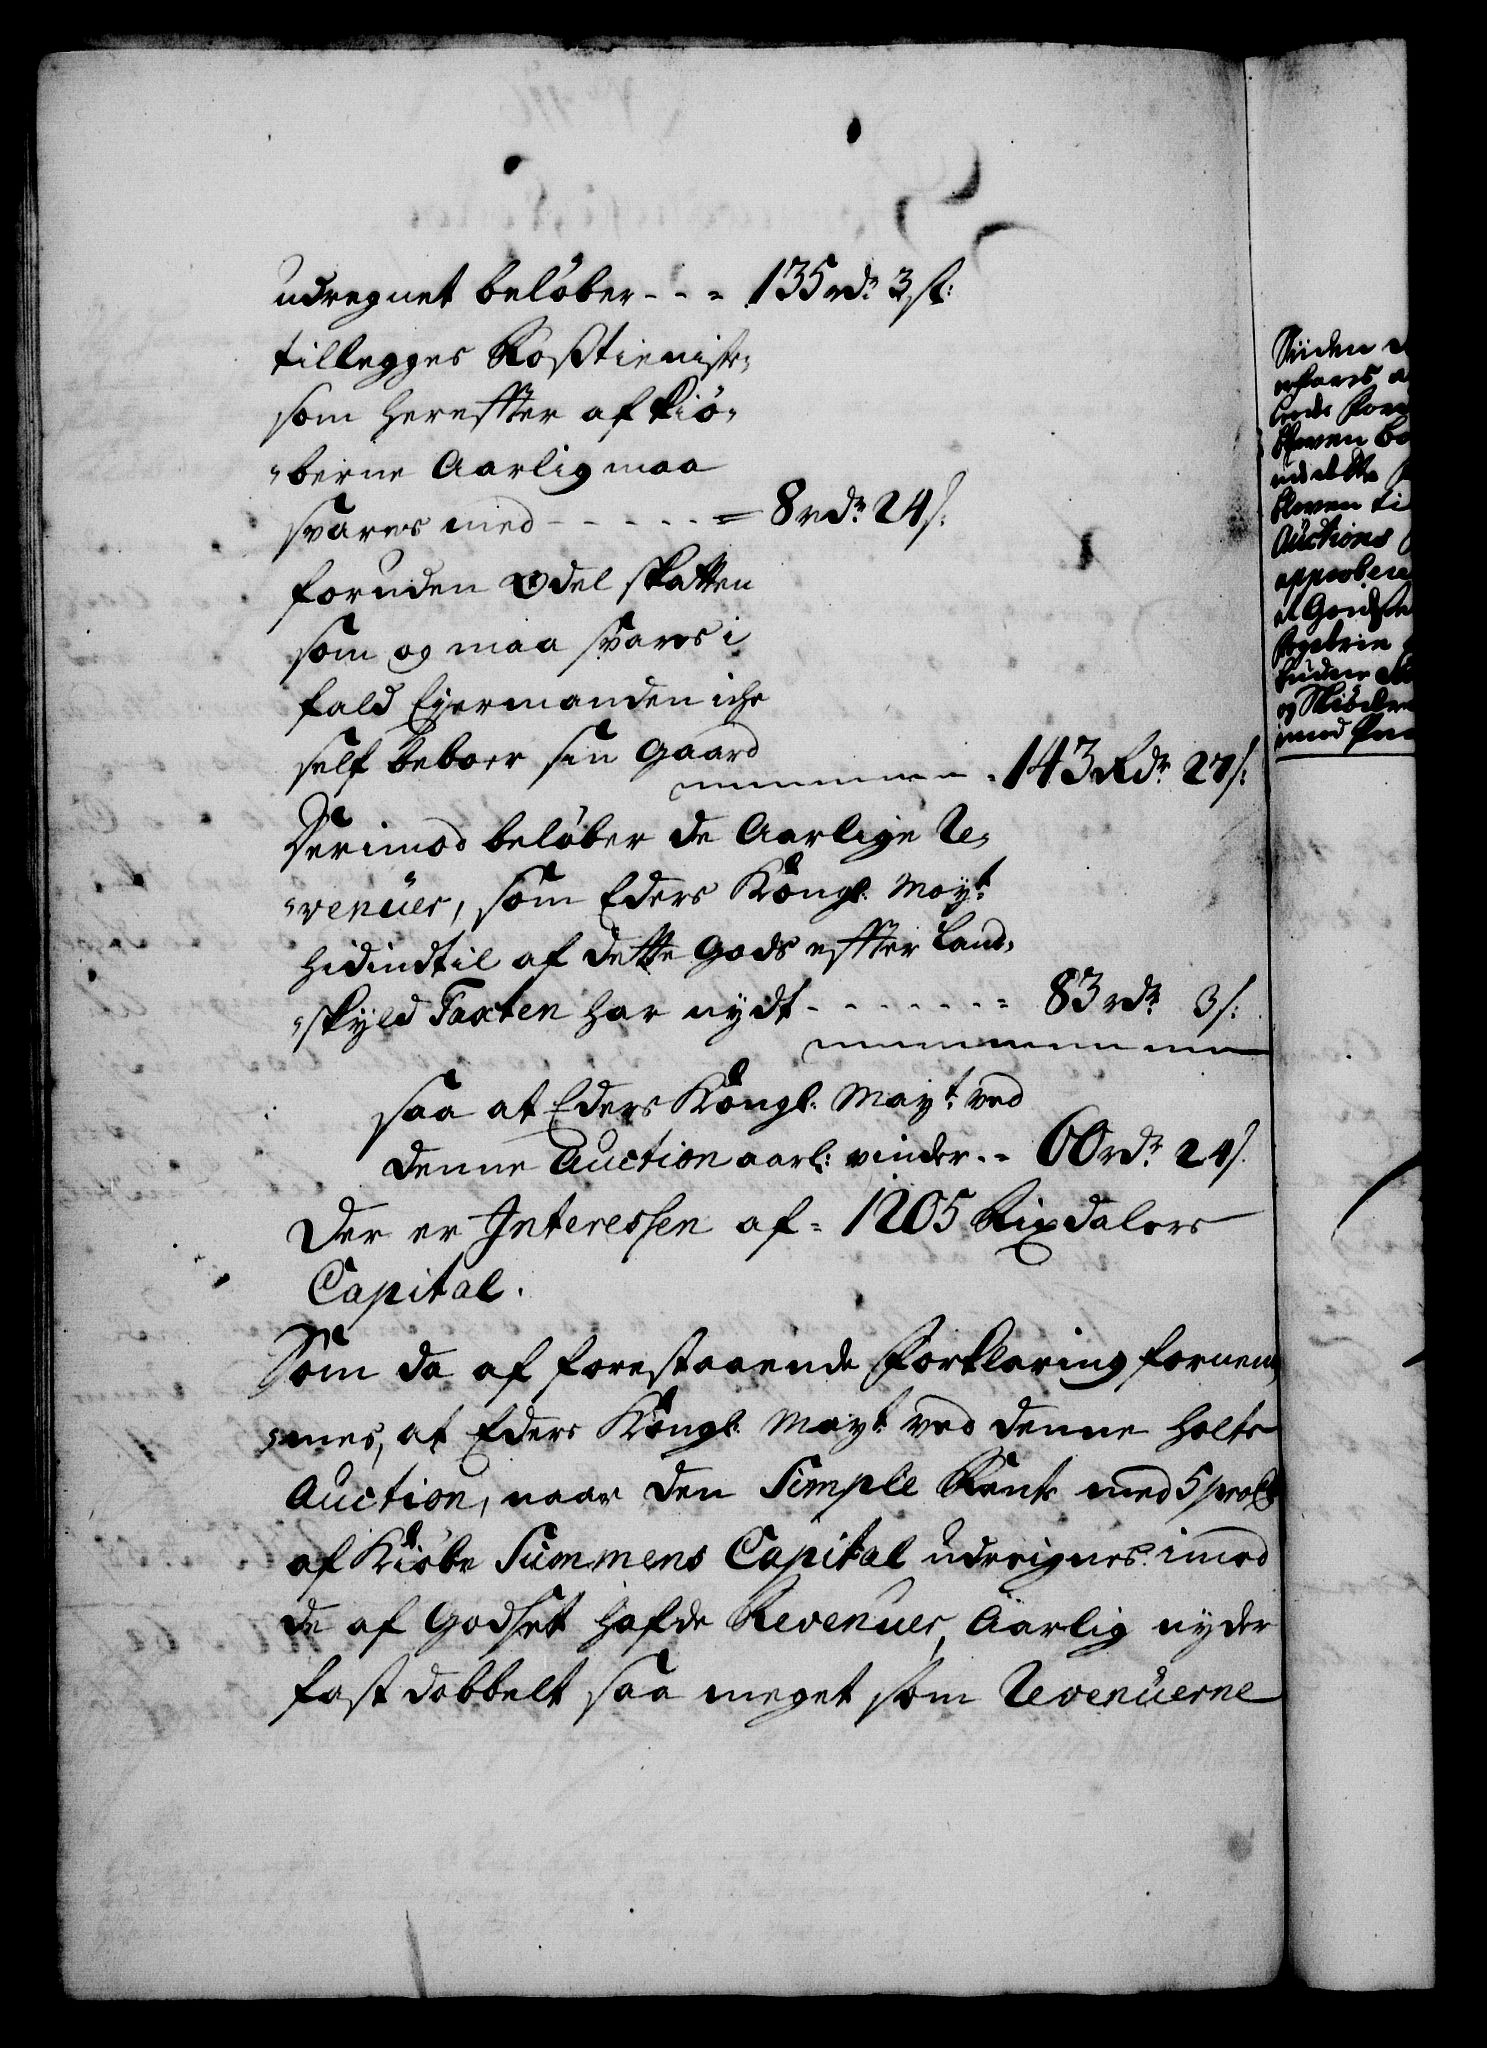 udregnet beløber - - = 135 rdr 3 sk:
tillegges Rosstienist,
som herefter af Kiø,
"berne Aarlig maa
svares med - - - - - = 8 rdr 24 s:
foruden Odel skatten
som og maa svares i
fald Eyermanden iche
self beboer sin Gaard
- 143 Rdr 27 s:
Derimod beløber de Aarlige Re,
"venüer, som Eders Kongl: Mayt:
hidindtil af dette Gods effter Land,
"skyld Taxten har nydt - - - - - - - = 83 rdr 3 s:
saa at Eders Kongl: Mayt: ved
denne Auction aarl: vinder - - 60 rdr 24 s.
Der er Interessen af = 1205 Rixdalers
Capital.
Som da af forestaaende Forklaring fornem,
"mes, at Eders Kongl: Mayt: ved denne holte
Auction, naar den Simple Rente med 5 proCt
af Kiøbe Summens Capital udreignes imod
de af Godset hafde Revenuer, Aarlig nyder
fast dobbelt saa meget som Revenüerne
Auctions